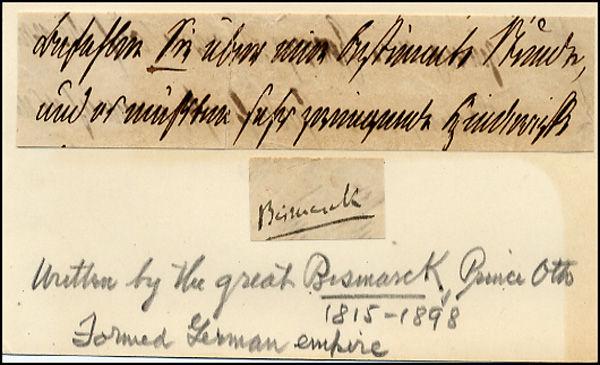 befehlen Sie über eine bestimmte Stunde,
und es müßten sehr zwingende
Bismarck
Written by the great Bismarck, Prince Otto
1815-1898
Formed German empire